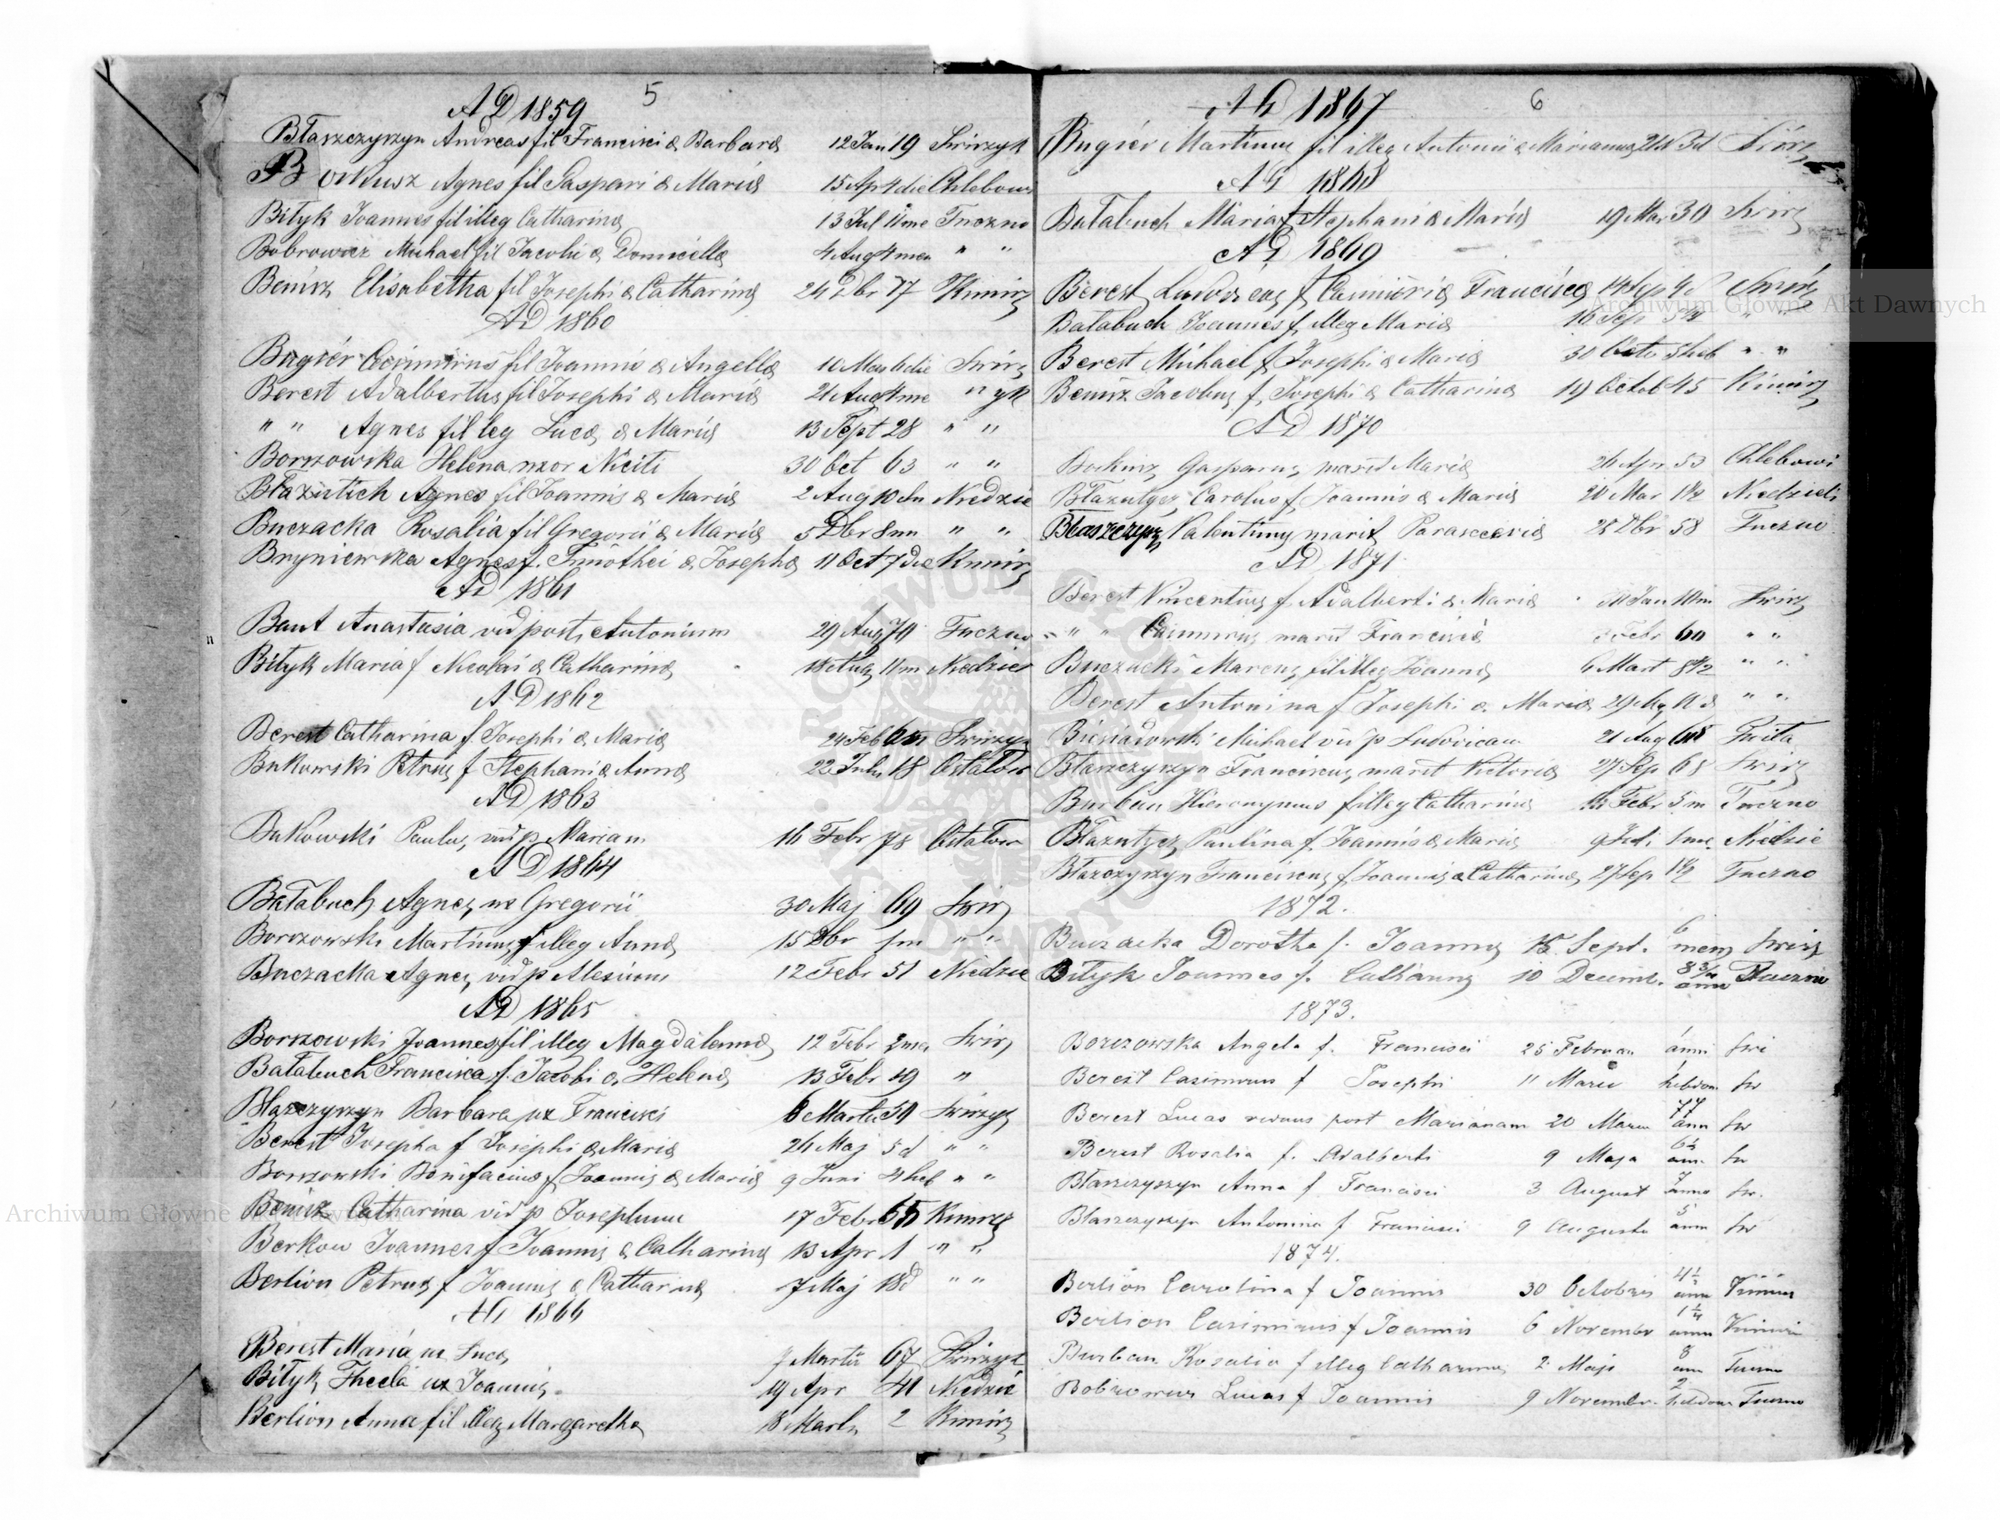 5
AD 1859
Błaszczyszyn Andreas fil Francisci & Barbara 12 Jan 19 Swirzyk
Borkusz Agnes fil Gaspari & Maria 15 Apr 4 die Chlebow
Bityk Joannes fil illeg Catharina 13 Jul 11 me Tuczno
Bobrowicz Michael fil Jacobi & Domicella 4 Aug 4 men " "
Benisz Elisabetha fil Josephi & Catharina 24 Dbr 17 Kimirz
AD 1860
Bugiér Casimirus fil Joannis & Angella 10 Mar die Swirz
Berest Adalbertus fil Josephi & Maria 21 Aug 4 me " yk
" " Agnes fil leg Luca & Maria 13 Sept 28 " "
Borszowska Helena uxor Niciti 30 Oct 63 " "
Błazutich Agnes fil Joannis & Maria 2 Aug 10 dn Niedzie
Buczacka Rosalia fil Gregorii & Maria 5 Dbr 8 mn " "
Bryniewska Agnes f. Timothei & Josepha 11 Oct 7 die Kimirz
AD 1861
Baut Anastasia vid post Antonium 29 Aug 70 Tuczno
Bityk Maria f Nicolai & Catharina Aug 11 m Niedzie
AD 1862
Berest Catharina f. Josephi & Maria 24 Feb Swirzyk
Bukowski Petrus f Stephani & Anna 22 Jul 18 Ostalow
AD 1863
Bukowski Paulus vid p Mariam 16 Febr 78 Ostalow
AD 1864
Bałabuch Agnes ux Gregorii 30 Maj 69 Swirz
Borszowski Martinus f illeg Anna 15 Dbr 1 m " "
Buczacka Agnes vid p Alexium 12 Febr 51 Niedzie
AD 1865
Borszowski Joannes fil illeg Magdalena 12 Febr 2 me Swirz
Bałabuch Francisca f. Jacobi & Helena 13 Febr 19 "
Błaszczyszyn Barbara ux Francisci 6 Martii 50 Swirzyk
Berest Josepha f Josephi & Maria 26 Maj 5 d " "
Borszowski Bonifacius f Joannis & Maria 9 Juni 4 heb " "
Benisz Catharina vid p Josephum 17 Febr 65 Kimirz
Berkow Joannes f Joannis & Catharina 13 Apr 1 " "
Berlion Petrus f Joannis & Catharina 7 Maj 18 d " "
AD 1866
Berest Maria ux Luca 7 Martii 67 Swirzyk
Bityk Thecla ux Joannis 19 Apr 41 Niedzie
Berlion Anna fil illeg Margaretha 18 Marti 2 Kimirz
6
AD 1867
Bugiér Martinus fil illeg Antonii & Marianna Swirz
AD 1868
Bałabuch Maria f Stephani & Maria 19 Mar 30 Swirz
AD 1869
Berest Ludovicus f Casimiri & Francisca 14 Sep Swirz
Bałabuch Joannes f. illeg Maria 16 Sep " "
Berest Michael f Josephi & Maria 30 Octo 5 heb " "
Benisz Jacobus f. Josephi & Catharina 19 Octob 45 Kimirz
AD 1870
Gasparus marit Maria 26 Apr 53 Chlebowi
Błazutycz Carolus f. Joannis & Maria 20 Mar 1½ Niedzieli
Błaszczysz Valentinus marit Parascevia 25 Dbr 58 Tuczno
AD 1871
Berest Vincentius f Adalberti & Maria Jan 11 m Swirz
" " Casimirus marit Francisca Febr 60 " "
Buczacki Marcus fil illeg Joanna 6 Mart 8½ " "
Berest Antonina f Josephi & Maria 29 Aug 11 d " "
Michael vid p Ludovicam 21 Aug 68
Błaszczyszyn Franciscus marit Victoria 27 Sep 68 Swirz
Burban Hieronymus f illeg Catharina Febr 5 m Tuczno
Błazutycz Paulina f. Joannis & Maria 9 1 me Niedzie
Błaszczyszyn Franciscus f. Joannis & Catharina 27 Sep 1½ Tuczno
1872.
Buczacka Dorothe f. Joannis 15. Sept. 6 mens Swirz
Bityk Joannes f. Catharina 10 Decemb. 8 ¾ anno Tuczno
1873.
Borszowska Angela f. Francisci 25 Februar anni Swi
Berest Casimirus f Josephi 11 Marci hebdom Sw
Berest Lucas viduus post Marianam 20 Marci 77 ann Sw
Berest Rosalia f. Adalberti 9 Maja 6½ ann Sw
Błaszczyszyn Anna f Francisci 3 August 7 anno Sw.
Błaszczyszyn Antonina f Francisci 9 Augusta 5 ann Sw
1874.
Berlion Carolina f Joannis 30 Octobris 4½ anno Kimirz
Berlion Casimirus f Joannis 6 Novembr 1¼ anno Kimirz
Burban Rosalia f illeg Catharina 2 Maji 8 ann Tuczno
Bobrowicz Lucas f Joannis 9 Novembr. 2 hebdom Tuczno
Archiwum Główne Akt Dawnych
Archiwum Główne Akt Dawnych
ARCHIWUM GŁÓWNE AKT DAWNYCH